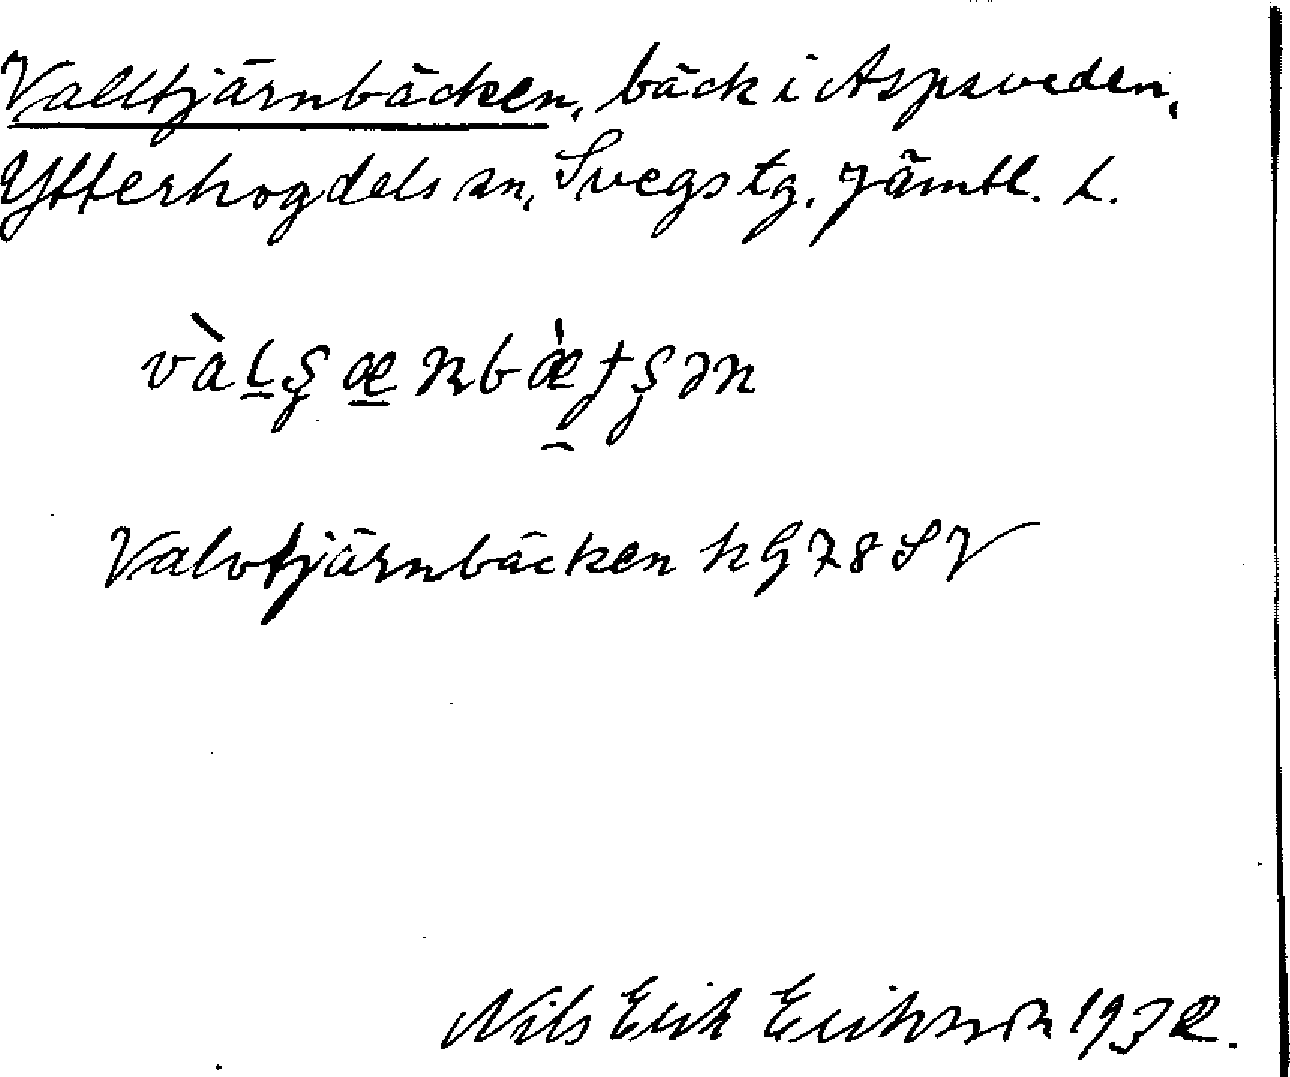 Valltjärnbäcken, bäck i Aspsveden,
Ytterhogdels sn, Svegs tg. Jämtl. L.
Valvtjärnbäcken k G 78 SV
Nils Erik Eriksson 1932.